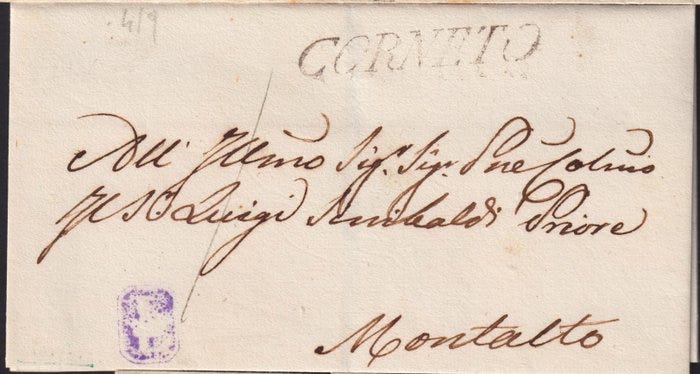 4/9
CORNETO
All' Illmo Sigr. Sigr. Pne Colmo
Il Sr Luigi Anibaldi Priore
Montalto